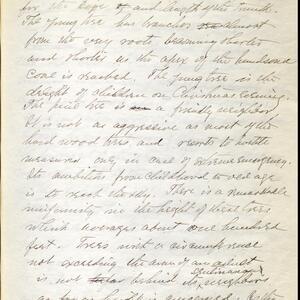 for the size of and length of the trunk.
The young tree has branches almost
from the very roots becoming shorter
and shorter as the apex of the handsome
cone is reached. The young tree is the
delight of children on Christmas evening.
The pine tree is a friendly neighbor
It is not as aggressive as most of the
hard wood trees and resorts to
measures only in case of extreme emergency.
Its ambition from childhood to old age
is to reach the sky. There is a remarkable
uniformity in the height of these trees
which averages about one hundred
feet. Trees with a circumference
not exceeding the arm of an adult
is not behind its neighbor
as far as height is concerned.